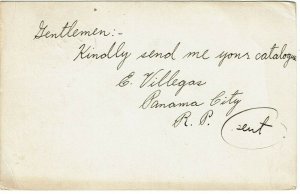 Gentlemen:-
Kindly send me your catalogue
E. Villegas
Panama City
R. P.
sent